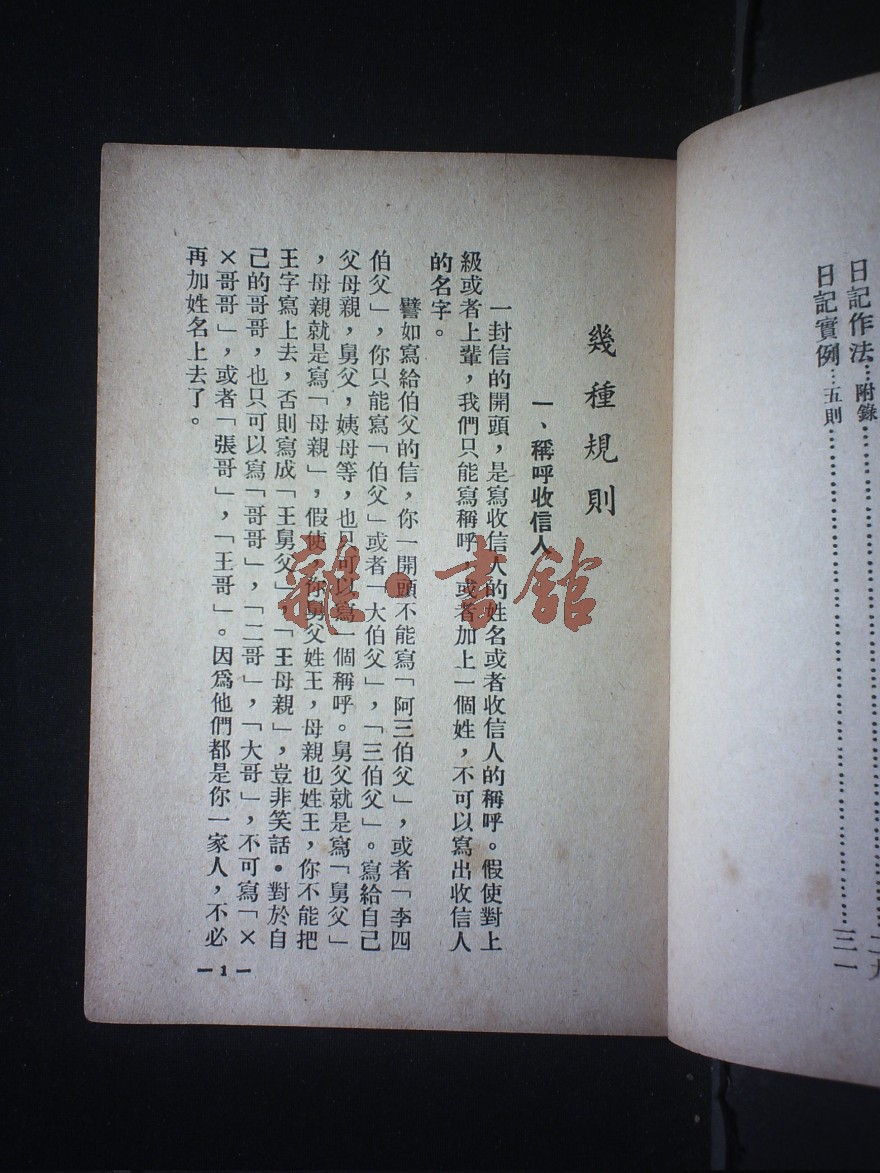 日記作法…附錄……………………二九
日記實例…五則……………………三一
幾種規則
一、稱呼收信人
一封信的開頭，是寫收信人的姓名或者收信人的稱呼。假使對上
級或者上輩，我們只能寫稱呼，或者加上一個姓，不可以寫出收信人
的名字。
譬如寫給伯父的信，你一開頭不能寫「阿三伯父」，或者「李四
伯父」，你只能寫「伯父」或者「大伯父」，「三伯父」。寫給自己
父母親，舅父，姨母等，也只可以寫一個稱呼。舅父就是寫「舅父」
，母親就是寫「母親」，假使，你舅父姓王，母親也姓王，你不能把
王字寫上去，否則寫成「王舅父」，「王母親」，豈非笑話。對於自
己的哥哥，也只可以寫「哥哥」，「二哥」，「大哥」，不可寫「×
×哥哥」，或者「張哥」，「王哥」。因爲他們都是你一家人，不必
再加姓名上去了。
—1—
雜·書館